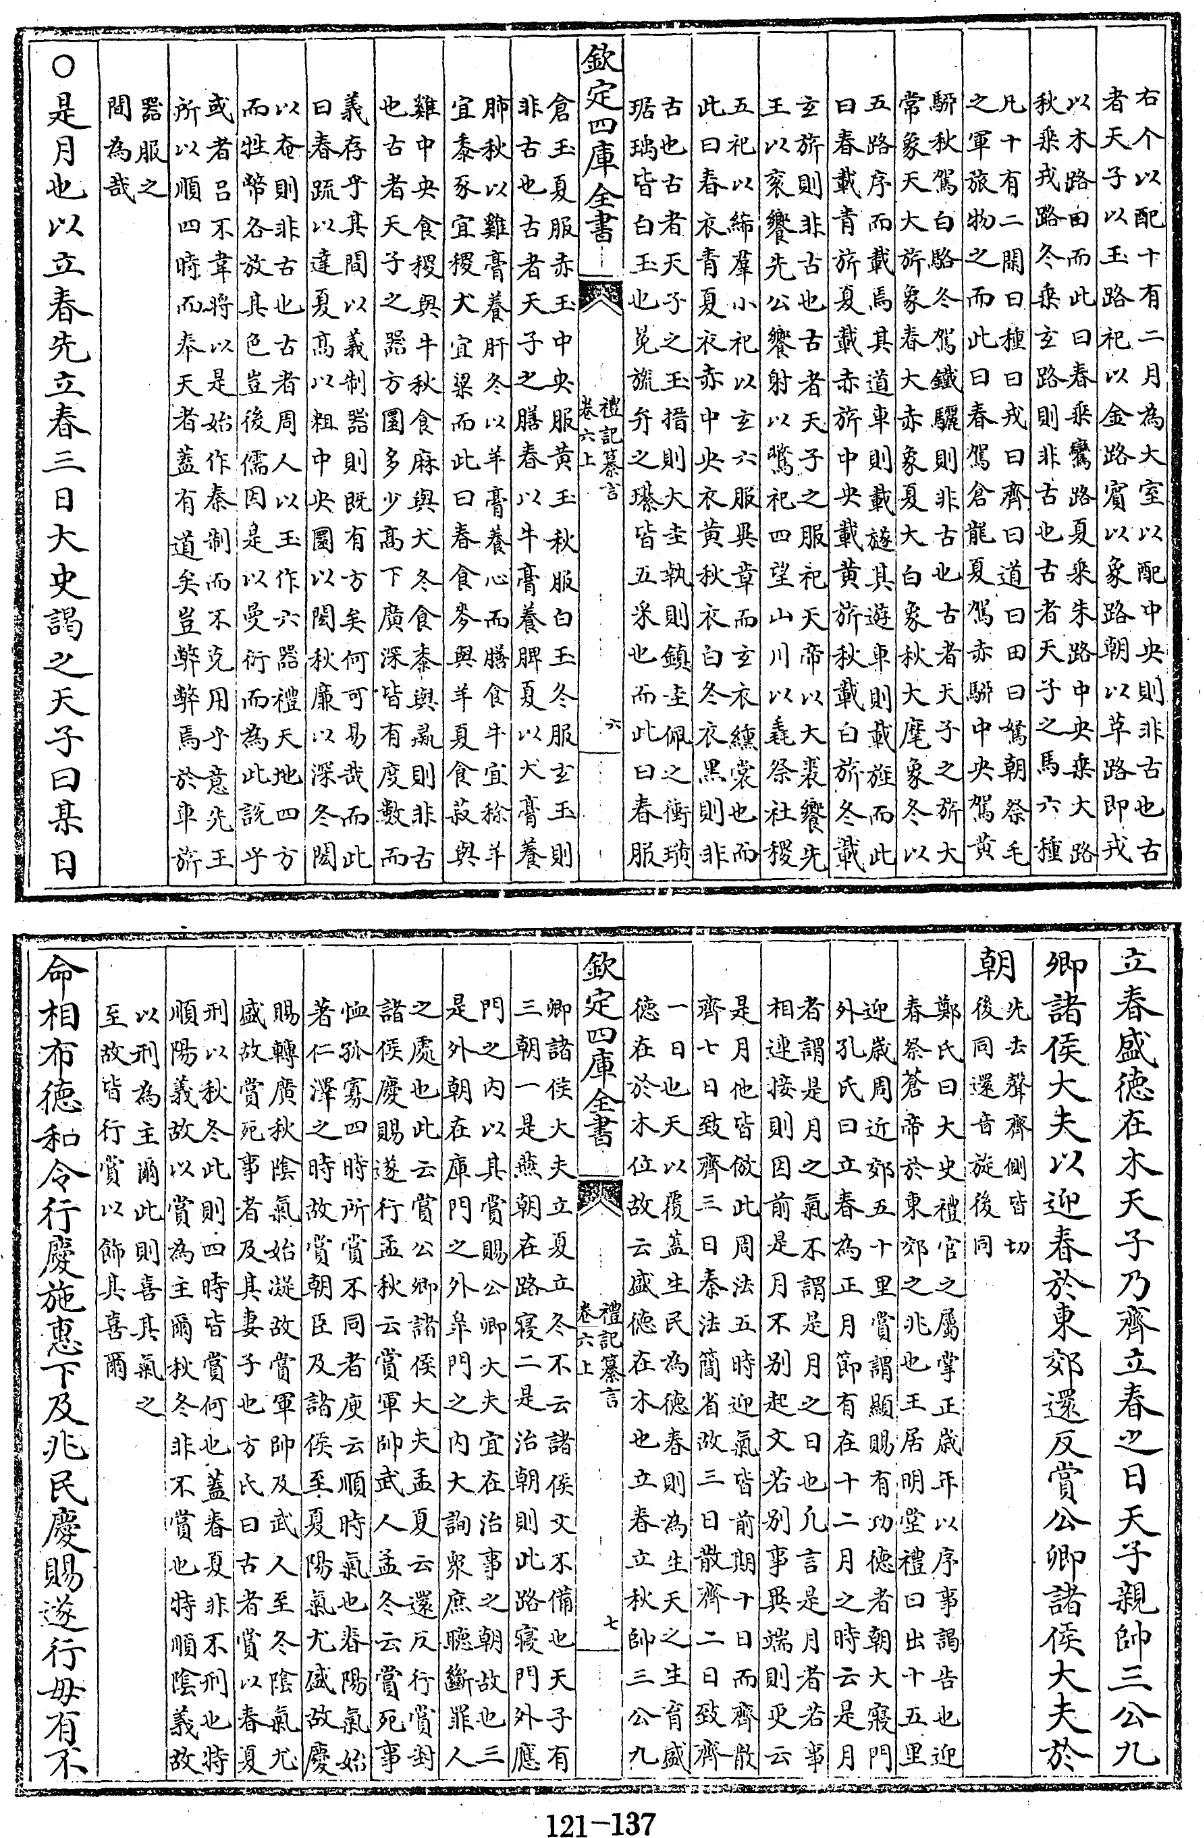 右个以配十有二月為大室以配中央則非古也古
者天子以玉路祀以金路賓以象路朝以革路即戎
以木路田而此曰春乗鸞路夏乗朱路中央乗大路
秋乗戎路冬乗玄路則非古也古者天子之馬六種
凡十有二閑曰種曰戎曰齊曰道曰田曰駑朝祭毛
之軍旅物之而此曰春駕倉龍夏駕赤騮中央駕黄
騮秋駕白駱冬駕鐵驪則非古也古者天子之旂大
常象天大旂象春大赤象夏大白象秋大麾象冬以
五路序而載焉其道車則載旞其遊車則載旌而此
曰春載青旂夏載赤旂中央載黄旂秋載白旂冬載
玄旂則非古也古者天子之服祀天帝以大裘饗先
王以衮饗先公饗射以鷩祀四望山川以毳祭社稷
五祀以絺羣小祀以玄六服異章而玄衣纁裳也而
此曰春衣青夏衣赤中央衣黄秋衣白冬衣黒則非
古也古者天子之玉搢則大圭執則鎮圭佩之衝璜
琚瑀皆白玉也冕旒弁之璂皆五采也而此曰春服
欽定四庫全書
禮記纂言
卷六上
六
倉玉夏服赤玉中央服黄玉秋服白玉冬服玄玉則
非古也古者天子之膳春以牛膏養脾夏以犬膏養
肺秋以雞膏養肝冬以羊膏養心而膳食牛宜稌羊
宜黍豕宜稷犬宜粱而此曰春食麥與羊夏食菽與
雞中央食稷與牛秋食麻與犬冬食黍與彘則非古
也古者天子之器方圜多少髙下廣深皆有度數而
義存乎其間以義制器則既有方矣何可易哉而此
曰春疏以達夏髙以粗中央圜以閎秋廉以深冬閎
以奄則非古也古者周人以玉作六器禮天地四方
而牲幣各放其色豈後儒因是以曼衍而為此說乎
或者吕不韋將以是始作秦制而不克用乎意先王
所以順四時而奉天者蓋有道矣豈弊弊焉於車旂
器服之
間為哉
○是月也以立春先立春三日大史謁之天子曰某日
立春盛德在木天子乃齊立春之日天子親帥三公九
卿諸侯大夫以迎春於東郊還反賞公卿諸侯大夫於
朝
先去聲齊側皆切
後同還音旋後同
鄭氏曰大史禮官之屬掌正歳年以序事謁告也迎
春祭蒼帝於東郊之兆也王居明堂禮曰出十五里
迎歳周近郊五十里賞謂顯賜有功德者朝大寢門
外孔氏曰立春為正月節有在十二月之時云是月
者謂是月之氣不謂是月之日也凡言是月者若事
相連接則因前是月不别起文若别事異端則更云
是月他皆倣此周法五時迎氣皆前期十日而齊散
齊七日致齊三日秦法簡省故三日散齊二日致齊
一日也天以覆蓋生民為德春則為生天之生育盛
德在於木位故云盛德在木也立春立秋帥三公九
欽定四庫全書
禮記纂言
卷六上
七
卿諸侯大夫立夏立冬不云諸侯文不備也天子有
三朝一是燕朝在路寢二是治朝則此路寢門外應
門之内以其賞賜公卿大夫宜在治事之朝故也三
是外朝在庫門之外臯門之内大詢衆庶聽斷罪人
之處也此云賞公卿諸侯大夫孟夏云還反行賞封
諸侯慶賜遂行孟秋云賞軍帥武人孟冬云賞死事
恤孤寡四時所賞不同者庾云順時氣也春陽氣始
著仁澤之時故賞朝臣及諸侯至夏陽氣尤盛故慶
賜轉廣秋陰氣始凝故賞軍帥及武人至冬陰氣尤
盛故賞死事者及其妻子也方氏曰古者賞以春夏
刑以秋冬此則四時皆賞何也蓋春夏非不刑也特
順陽義故以賞為主爾秋冬非不賞也特順陰義故
以刑為主爾此則喜其氣之
至故皆行賞以飾其喜爾
命相布德和令行慶施惠下及兆民慶賜遂行毋有不
121-137